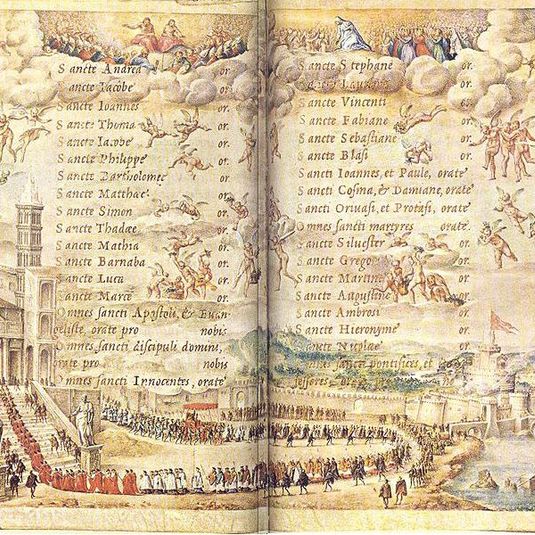 Sancte Andrea or.
Sancte Iacobe or.
Sancte Ioannes or.
Sancte Thoma or.
Sancte Iacobe or.
Sancte Philippe or.
Sancte Bartholomee or.
Sancte Matthaee or.
Sancte Simon or.
Sancte Thadaee or.
Sancte Mathia or.
Sancte Barnaba or.
Sancte Luca or.
Sancte Marce or.
Omnes sancti Apostoli, & Euan
gelistae, orate pro nobis
Omnes sancti discipuli domini,
orate pro nobis
Omnes sancti Innocentes, orate
Sancte Stephane or.
Sancte or.
Sancte Vincenti or.
Sancte Fabiane or.
Sancte Sebastiane or.
Sancte Blasi or.
Sancti Ioannes, et Paule, orate
Sancti Cosma, & Damiane, orate
Sancti Geruasi, et Protasi, orate
Omnes sancti martyres orate
Sancte Siluester or.
Sancte or.
Sancte Martine or.
Sancte Augustine or.
Sancte Ambrosi or.
Sancte Hieronyme or.
Sancte or.
Omnes sancti pontifices, et